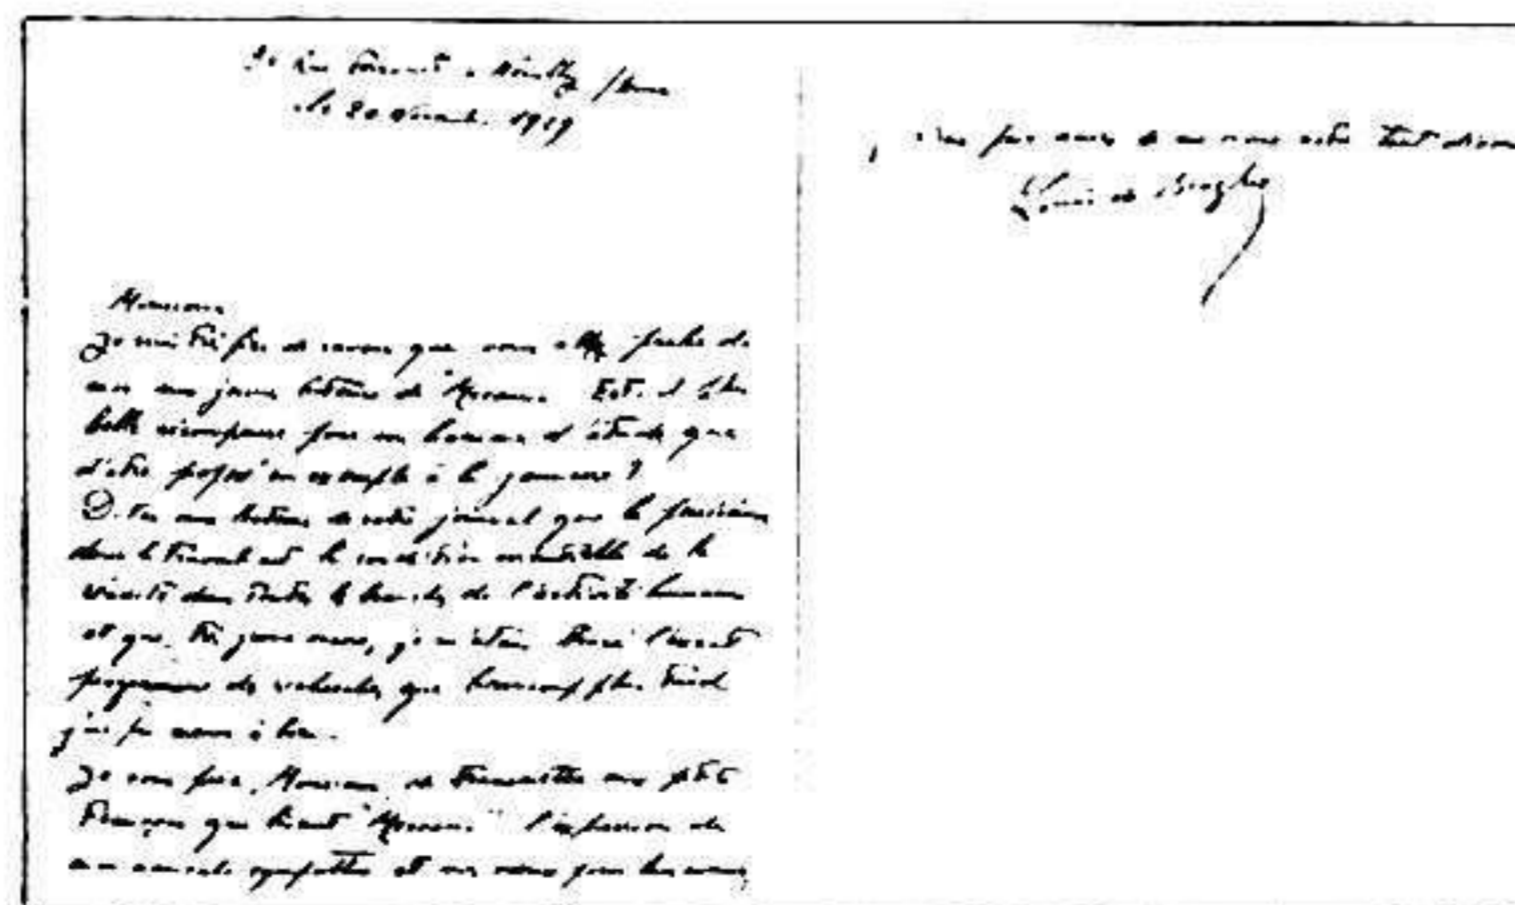 Rue Perronet à Neuilly / Seine
le 20 1929
Monsieur
Je suis très fier de savoir que vous allez parler de
moi aux jeunes lecteurs de " Est-il plus
belle récompense pour un homme d'étude que
d'être proposé en exemple à la jeunesse ?
Dites aux lecteurs de votre journal que la
dans le travail est la condition essentielle de la
réussite dans toutes les branches de l'activité humaine
et que, très jeune encore, je m'étais tracé l'exact
programme de recherches que beaucoup plus tard
j'ai pu mener à bien.
Je vous prie, Monsieur, de transmettre aux petits
Français qui lisent " " l'expression de
ma amicale sympathie et mes vœux pour leur avenir,
, vous me tout
Louis de Broglie